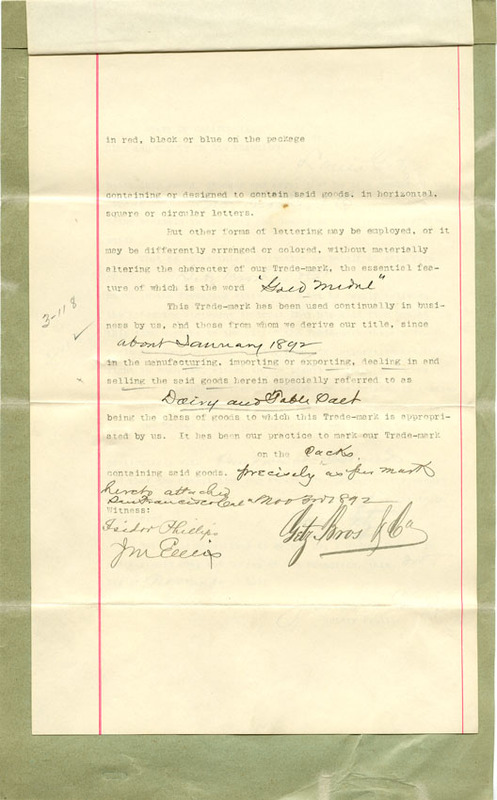 in red, black or blue on the package
containing or designed to contain said goods, in horizontal,
square or circular letters.
But other forms of lettering may be employed, or it
may be differently arranged or colored, without materially
altering the character of our Trade-mark, the essential fea-
ture of which is the word "Gold Medal"
This Trade-mark has been used continually in busi-
ness by us, and those from whom we derive our title, since
about January 1892
3-118
in the manufacturing, importing or exporting, dealing in and
selling the said goods herein especially referred to as
Dairy and Table Salt
being the class of goods to which this Trade-mark is appropri-
ated by us. It has been our practice to mark our Trade-mark
on the Sacks
containing said goods. precisely as per mark
hereto attached
San Francisco Cal Nov 3rd 1892
Witness:
Isidor Phillips
Getz Bros & Co
JM Ellis